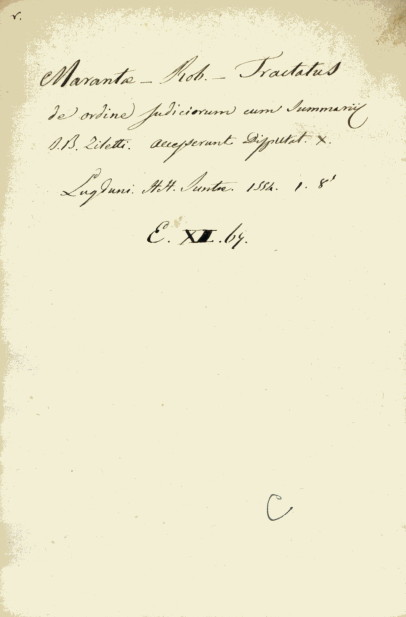 r.
Marantæ — Rob. — Tractatus
de ordine judiciorum cum Summariis
J. B. Ziletti. accesserunt Disputat. X.
Lugduni. H. H. Juntæ. 1554. 1. 8°
E. XII. 67.
C